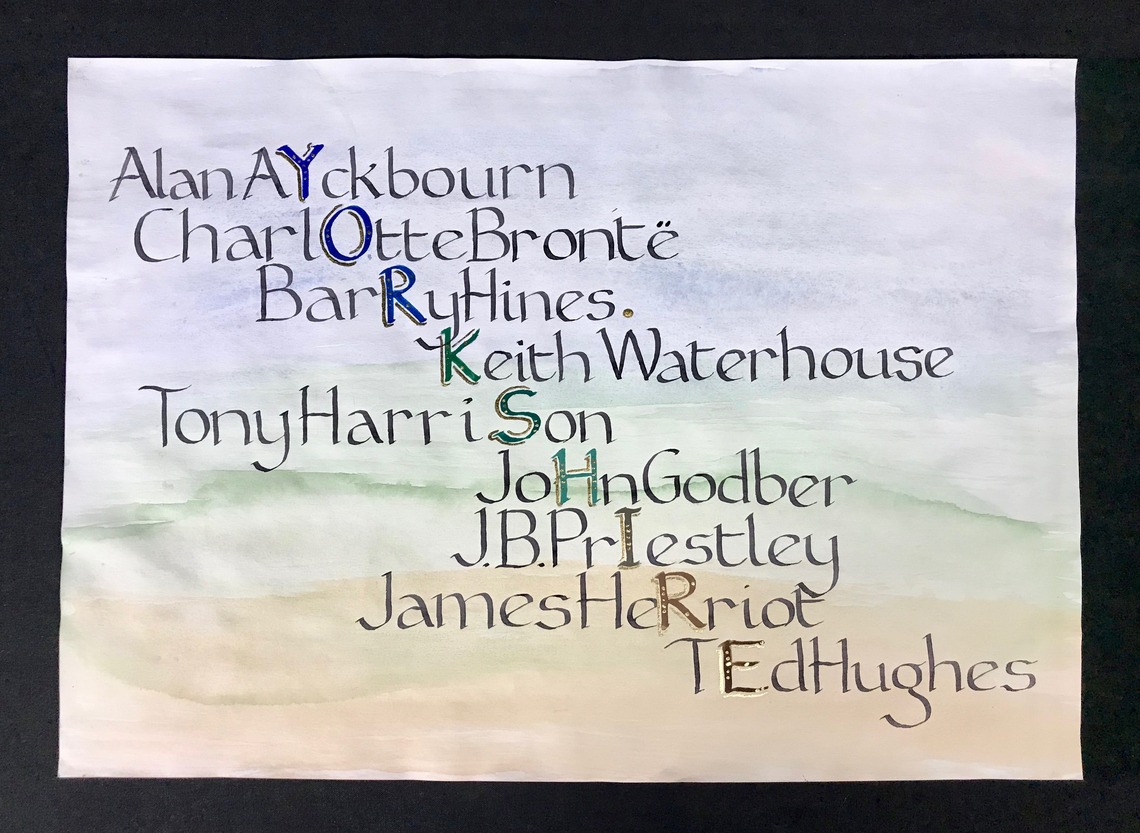 Alan AYckbourn
CharlOtte Brontë
BarRy Hines.
Keith Waterhouse
Tony HarriSon
JoHn Godber
J.B.PrIestley
James HeRriot
TEd Hughes